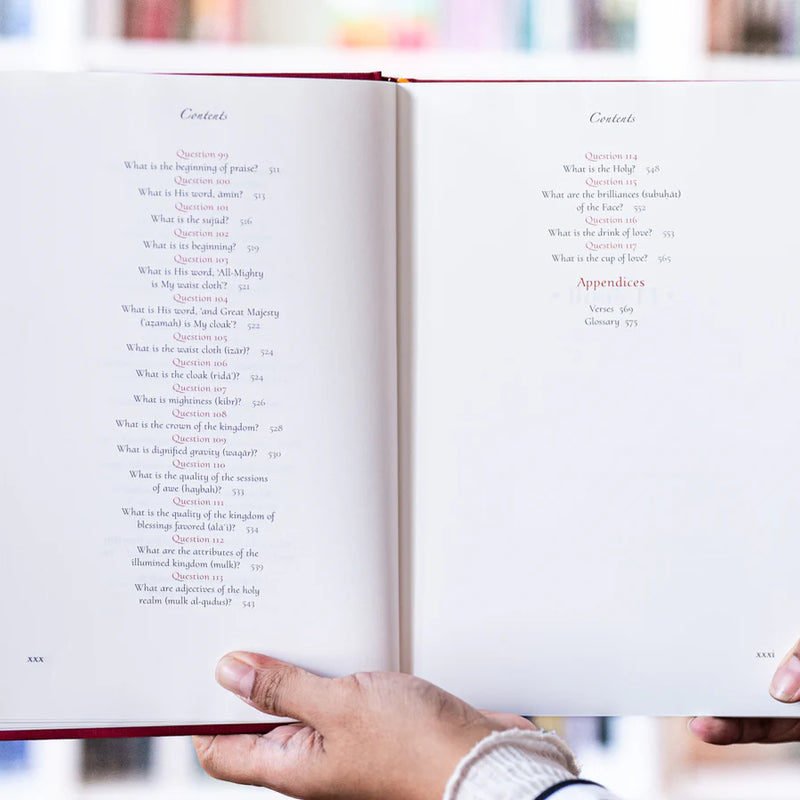 Contents
Question 99
What is the beginning of praise? 511
Question 100
What is His word, āmīn? 513
Question 101
What is the sujūd? 516
Question 102
What is its beginning? 519
Question 103
What is His word, 'All-Mighty
is My waist cloth'? 521
Question 104
What is His word, 'and Great Majesty
('aẓamah) is My cloak'? 522
Question 105
What is the waist cloth (izār)? 524
Question 106
What is the cloak (ridā')? 524
Question 107
What is mightiness (kibr)? 526
Question 108
What is the crown of the kingdom? 528
Question 109
What is dignified gravity (waqār)? 530
Question 110
What is the quality of the sessions
of awe (haybah)? 533
Question 111
What is the quality of the kingdom of
blessings favored (ālā'i)? 534
Question 112
What are the attributes of the
illumined kingdom (mulk)? 539
Question 113
What are adjectives of the holy
realm (mulk al-qudus)? 543
xxx
Contents
Question 114
What is the Holy? 548
Question 115
What are the brilliances (subuḥāt)
of the Face? 552
Question 116
What is the drink of love? 553
Question 117
What is the cup of love? 565
Appendices
Verses 569
Glossary 575
xxxi